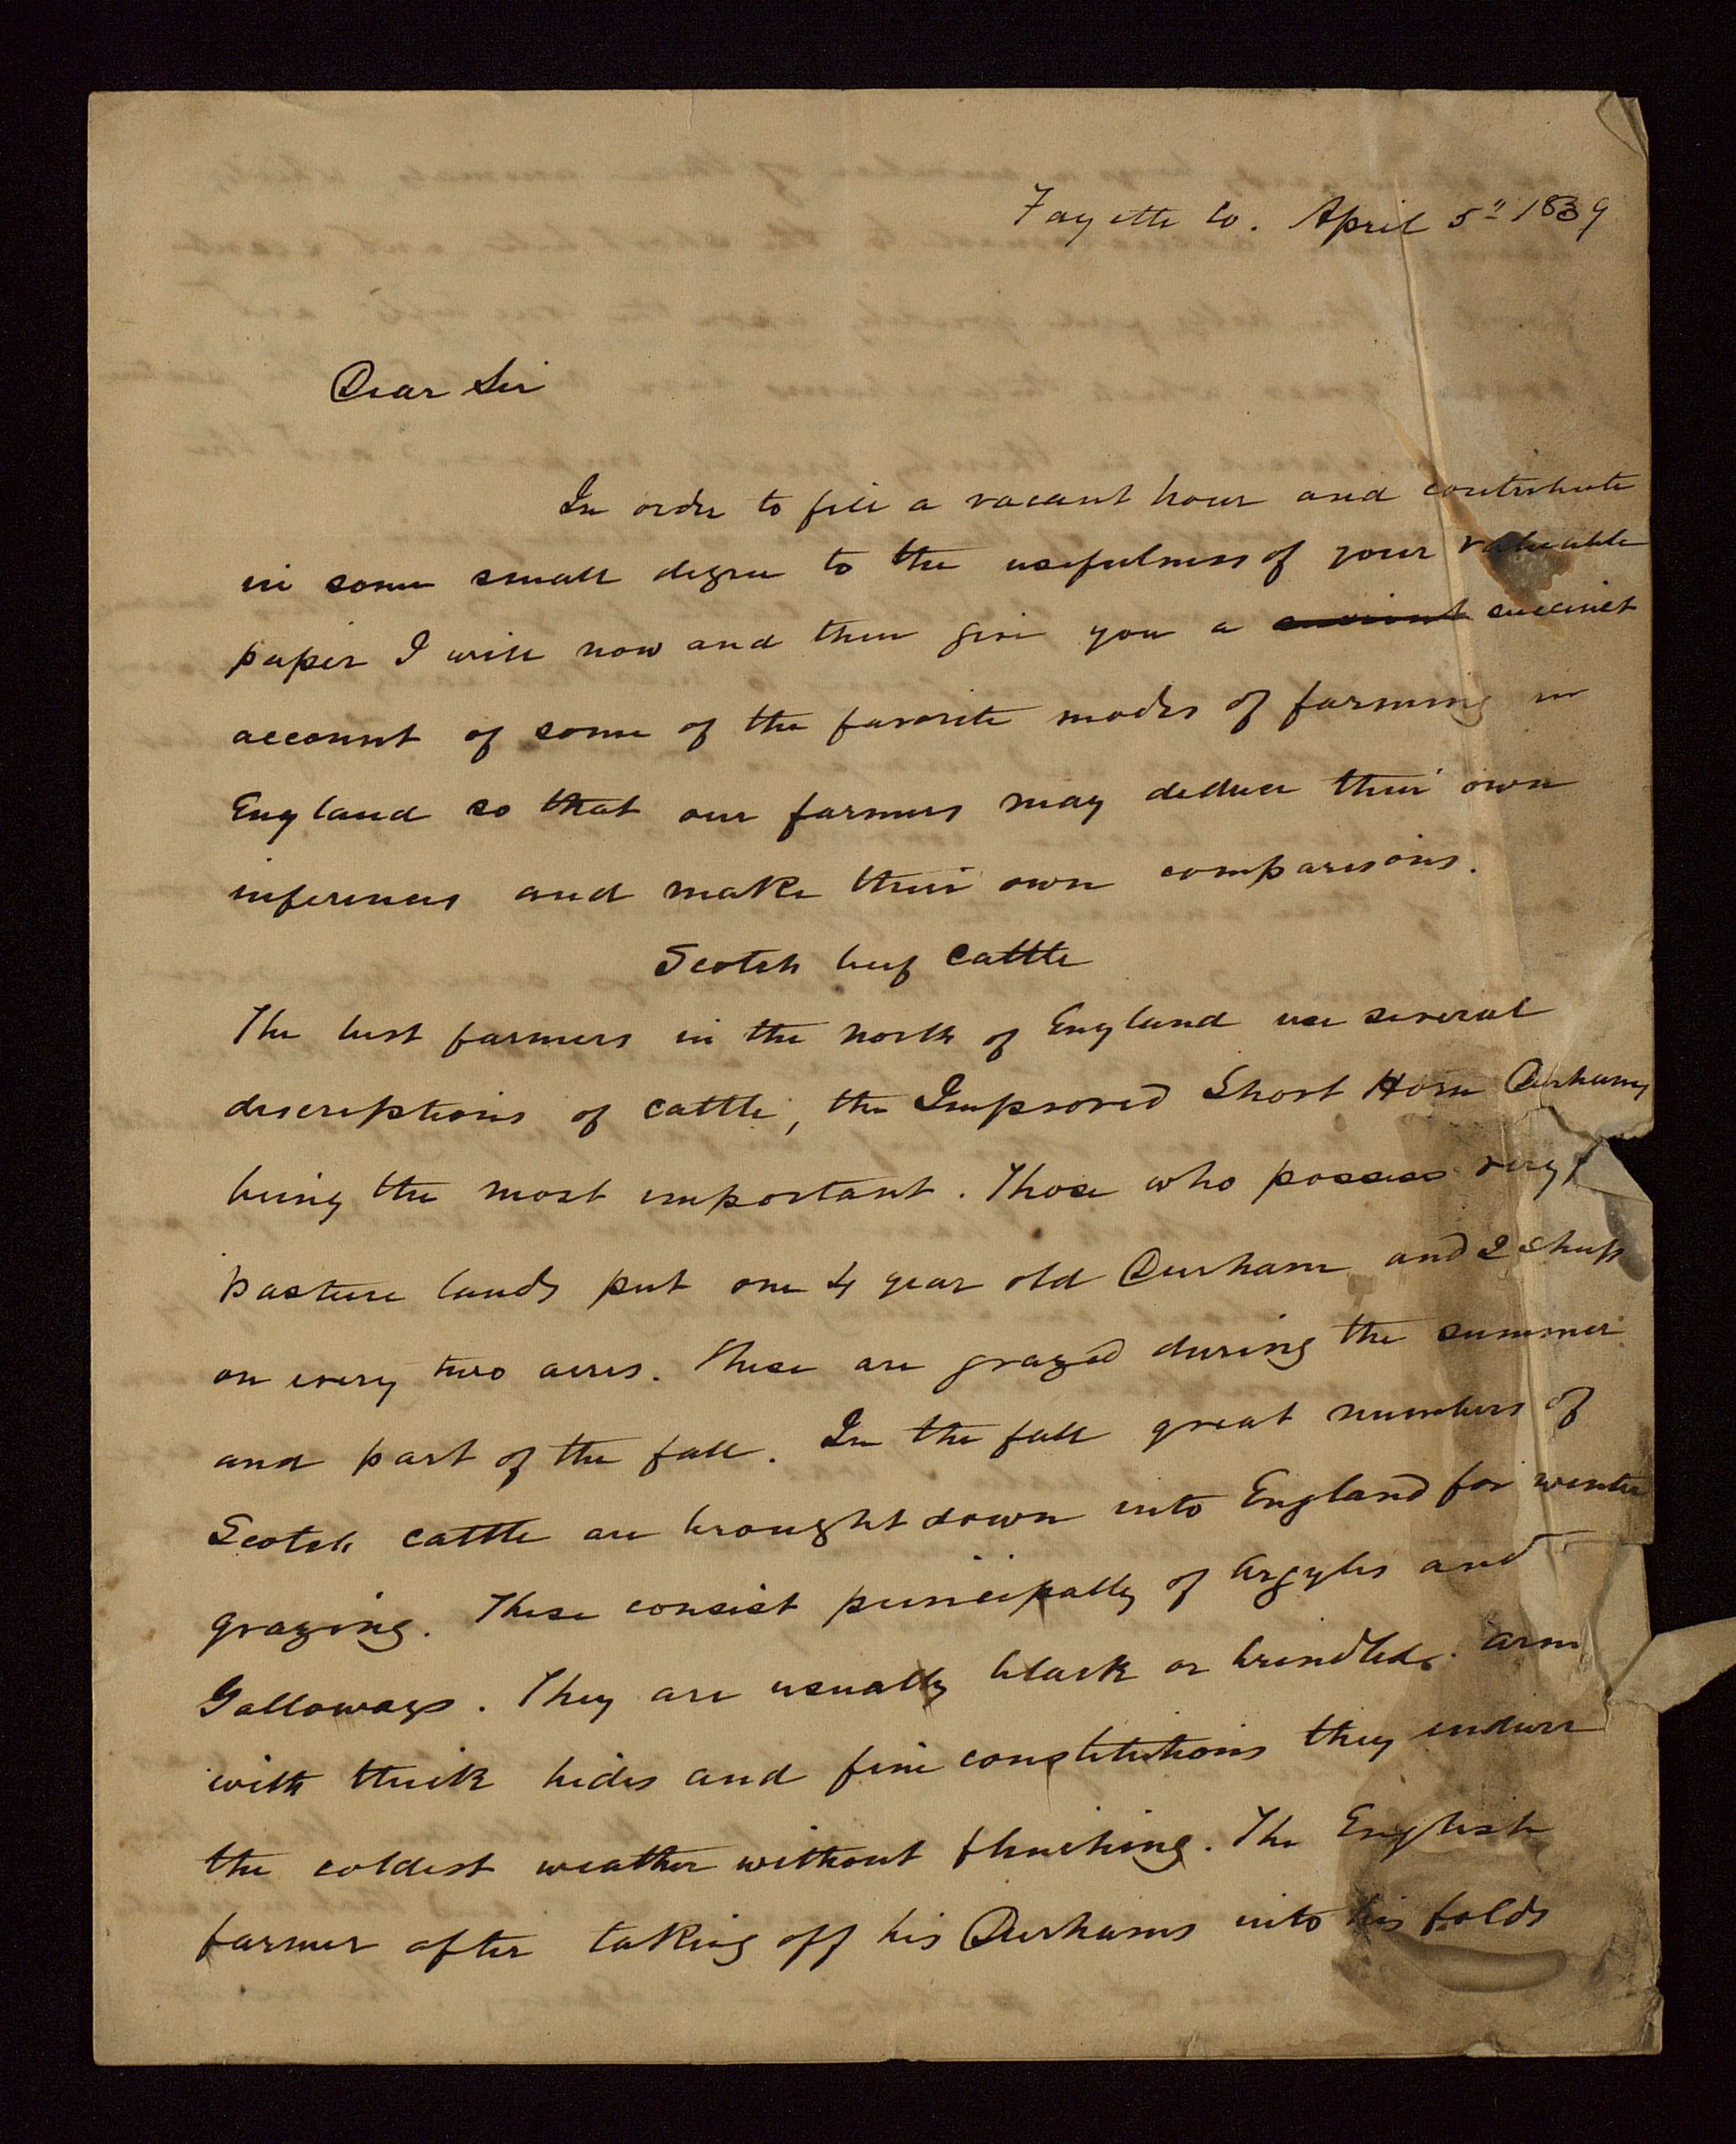 Fayette Co. April 5" 1839
Dear Sir
In order to fill a vacant hour and contribute
in some small degree to the usefulness of your valuable
paper I will now and then give you a succinct
account of some of the favorite modes of farming in
England so that our farmers may deduce their own
inferences and make their own comparisons.
Scotch beef cattle
The best farmers in the north of England use several
descriptions of cattle, the Improved Short Horn Durhams
being the most important. Those who possess very
pasture lands put one 4 year old Durham and 2 sheep
on every two acres. These are grazed during the summer
and part of the fall. In the fall great numbers of
Scotch cattle are brought down into England for winter
grazing. These consist principally of Argyles and
Galloways. They are usually black or brindled.
with thick hides and fine constitutions they endure
the coldest weather without flinching. The English
farmer after taking off his Durhams into his folds